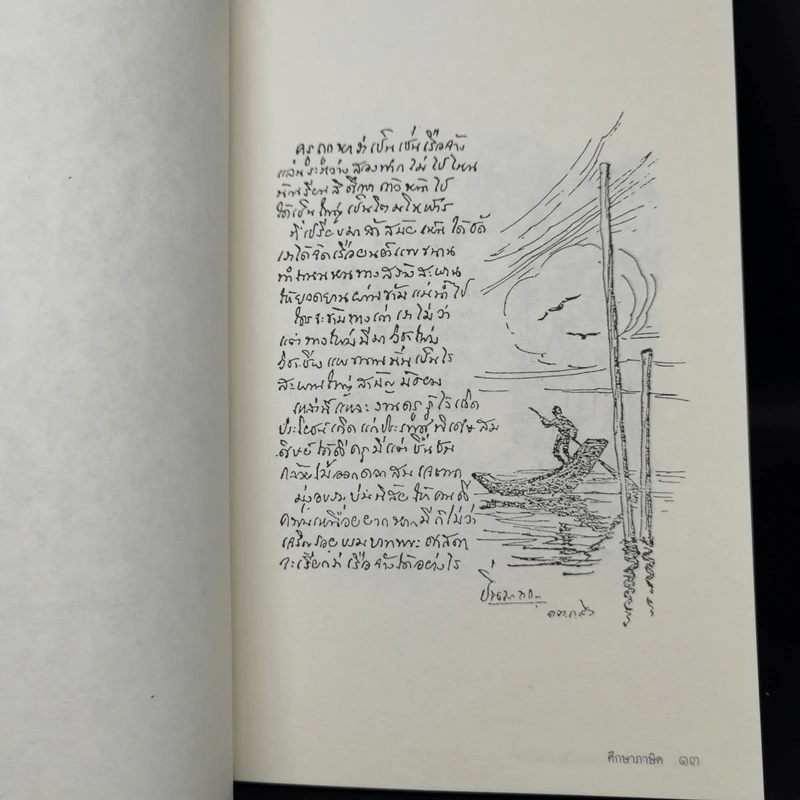 ครูถูกหาว่าเป็นเช่นเรือจ้าง
แล่นระหว่างสองฟากไม่ไปไหน
นักเรียนสิศึกษาก้าวหน้าไป
ได้เป็นใหญ่เป็นโตมโหฬาร
ที่เปรียบมาล้าสมัยเห็นได้ชัด
เราได้จัดเรือยนต์แพขนาน
ทำ ทางสร้างสะพาน
ให้ยวดยานผ่านข้ามแม่น้ำไป
ใครจะข้ามทางเก่าเราไม่ว่า
แต่ทางใหม่มีมา ใหม่
แพขนานนั่นเป็นไร
สะพานใหญ่ นิยม
เหล่านี้แหละงานครูรู้ไว้เถิด
ประโยชน์เกิดแก่ประเทศวิเศษสม
ศิษย์ได้ดีครูมีแต่ชื่นชม
กล้วยไม้ออกดอกสม
มุ่งอบรมบ่มนิสัยให้คนดี
ความเหนื่อยยากหากมีก็ไม่ว่า
เจริญรอยบรมบาทพระศาสดา
จะเรียกว่าเรือจ้างได้อย่างไร
ปิ่น มาลากุล
ศึกษาภาษิต ๑๓